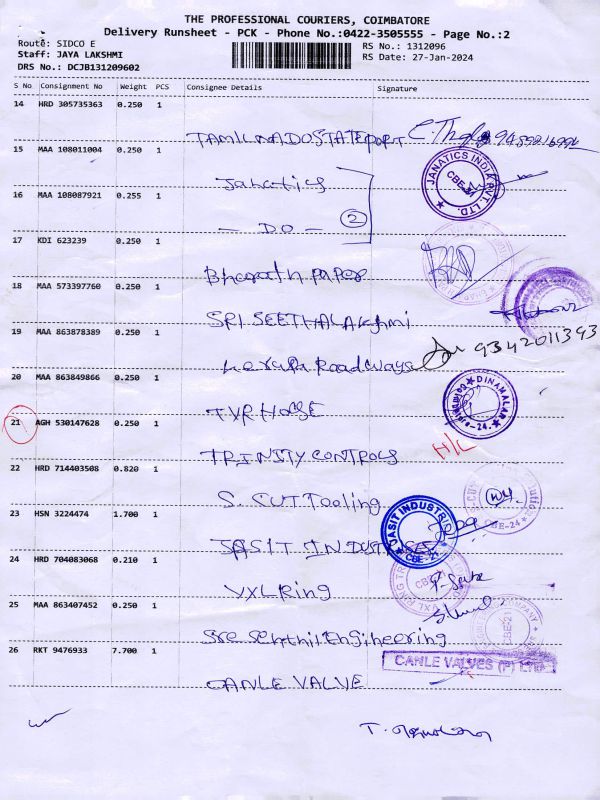 THE PROFESSIONAL COURIERS, COIMBATORE
Delivery Runsheet - PCK - Phone No.:0422-3505555 - Page No.:2
Route: SIDCO E
Staff: JAYA LAKSHMI
DRS No.: DCJB131209602
RS No.: 1312096
RS Date: 27-Jan-2024
S No Consignment No Weight PCS Consignee Details Signature
14 HRD 305735363 0.250 1
TAMILNADOSTATEPORT
15 MAA 108011004 0.250 1
Janatics
JANATICS INDIA PVT. LTD. CBE-21
16 MAA 108087921 0.255 1
- DO - 2
17 KDI 623239 0.250 1
Bharath paper
18 MAA 573397760 0.250 1
SRI SEETHALAKshmi
19 MAA 863878389 0.250 1
Roadways 9342011393
20 MAA 863849866 0.250 1
TVR HOUSE
DINAMALAR
21 AGH 530147628 0.250 1
TRINITY CONTROLS H/L
22 HRD 714403508 0.820 1
S. CUT Tooling
CBE-24
23 HSN 3224474 1.700 1
JASIT INDUSTRIES
JASIT INDUSTRIES CBE-21
24 HRD 704083068 0.210 1
VXL Ring
25 MAA 863407452 0.250 1
Sre Senthil Engineering
CBE-21
26 RKT 9476933 7.700 1
CANLE VALVES (P) LTD
CANLE VALVE